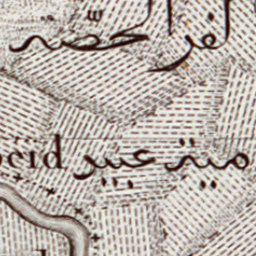 كفر الحصّة
eid ميت عبيد